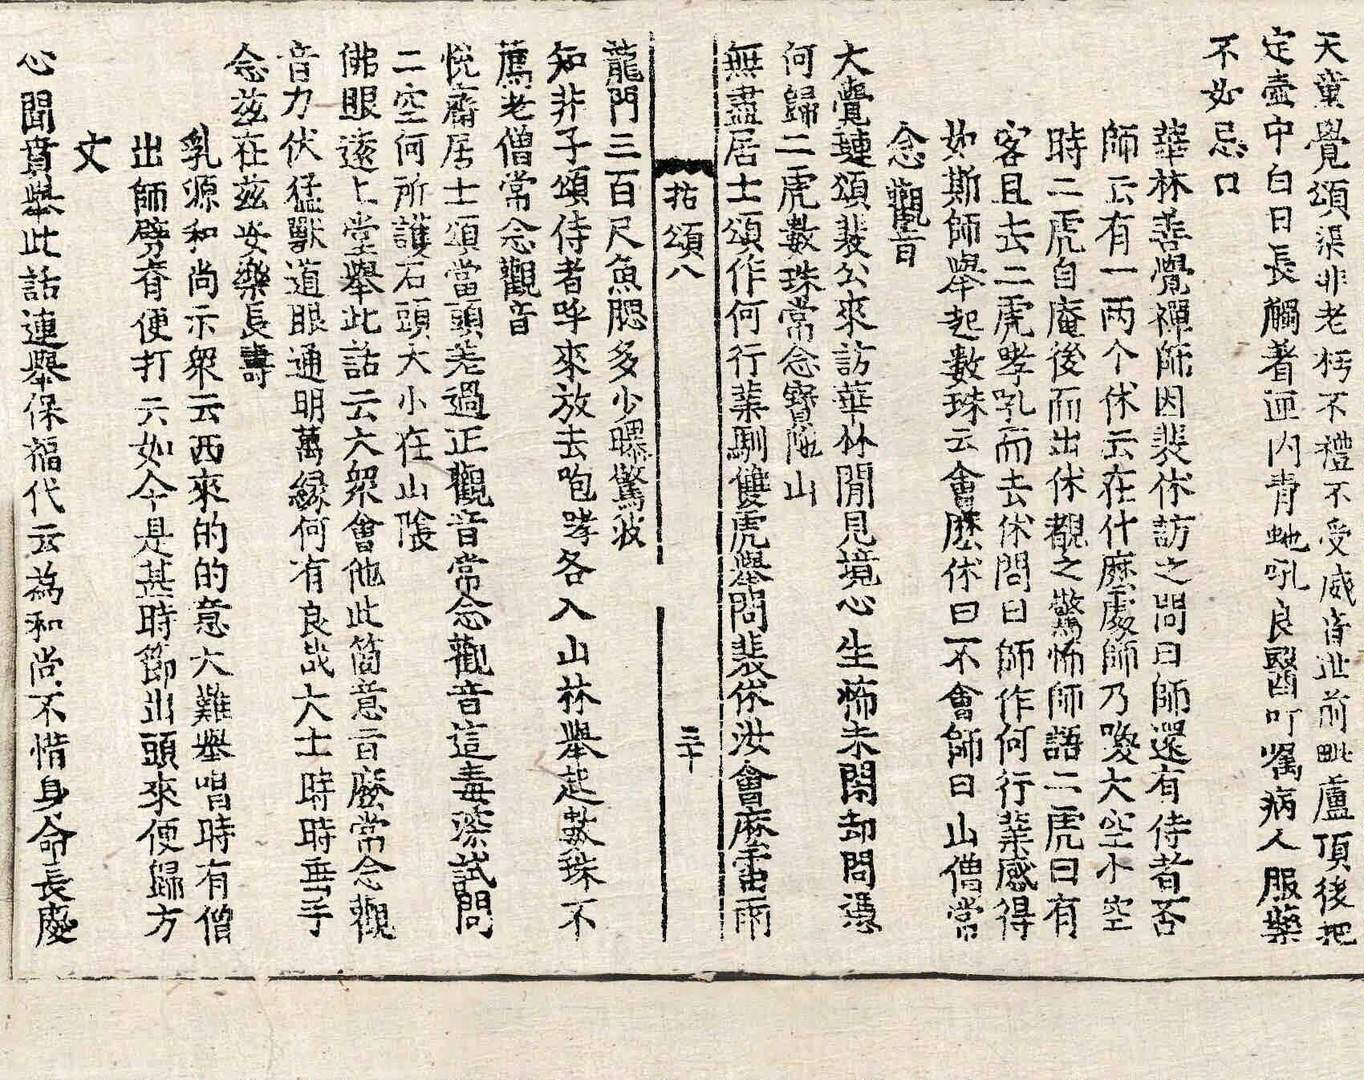 天童覺頌渠非老枵不禮不受威音世前毗盧頂後把
定壺中白日長觸著匣内青虵吼良醫叮囑病人服藥
不必忌口
華林善覺禪師因裴休訪之問曰師還有侍者否
師云有一两个休云在什麽處師乃喚大空小空
時二虎自庵後而出休覩之驚怖師語二虎曰有
客且去二虎哮吼而去休問曰師作何行業感得
如斯師舉起數珠云會麽休曰不會師曰山僧常
念觀音
大覺璉頌裴公來訪華林閒見境心生怖未閑却問馮
何歸二虎數珠常念寶陁山
無盡居士頌作何行業馴雙虎舉問裴休汝會麽雷雨
拈頌八
三十
龍門三百尺魚腮多少曝驚波
知非子頌侍者呼來放去咆哮各入山林舉起數珠不
薦老僧常念觀音
悦齋居士頌當頭差過正觀音常念觀音這毒深試問
二空何所護石頭大小在山隂
佛眼遠上堂舉此話云大衆會他此箇意旨麽常念觀
音力伏猛獸道眼通明萬緣何有良哉大士時時垂手
念兹在兹安樂長壽
乳源和尚示衆云西來的的意大難舉唱時有僧
出師劈脊便打云如今是甚時節出頭來便歸方
丈
心聞賁舉此話連舉保福代云為和尚不惜身命長慶